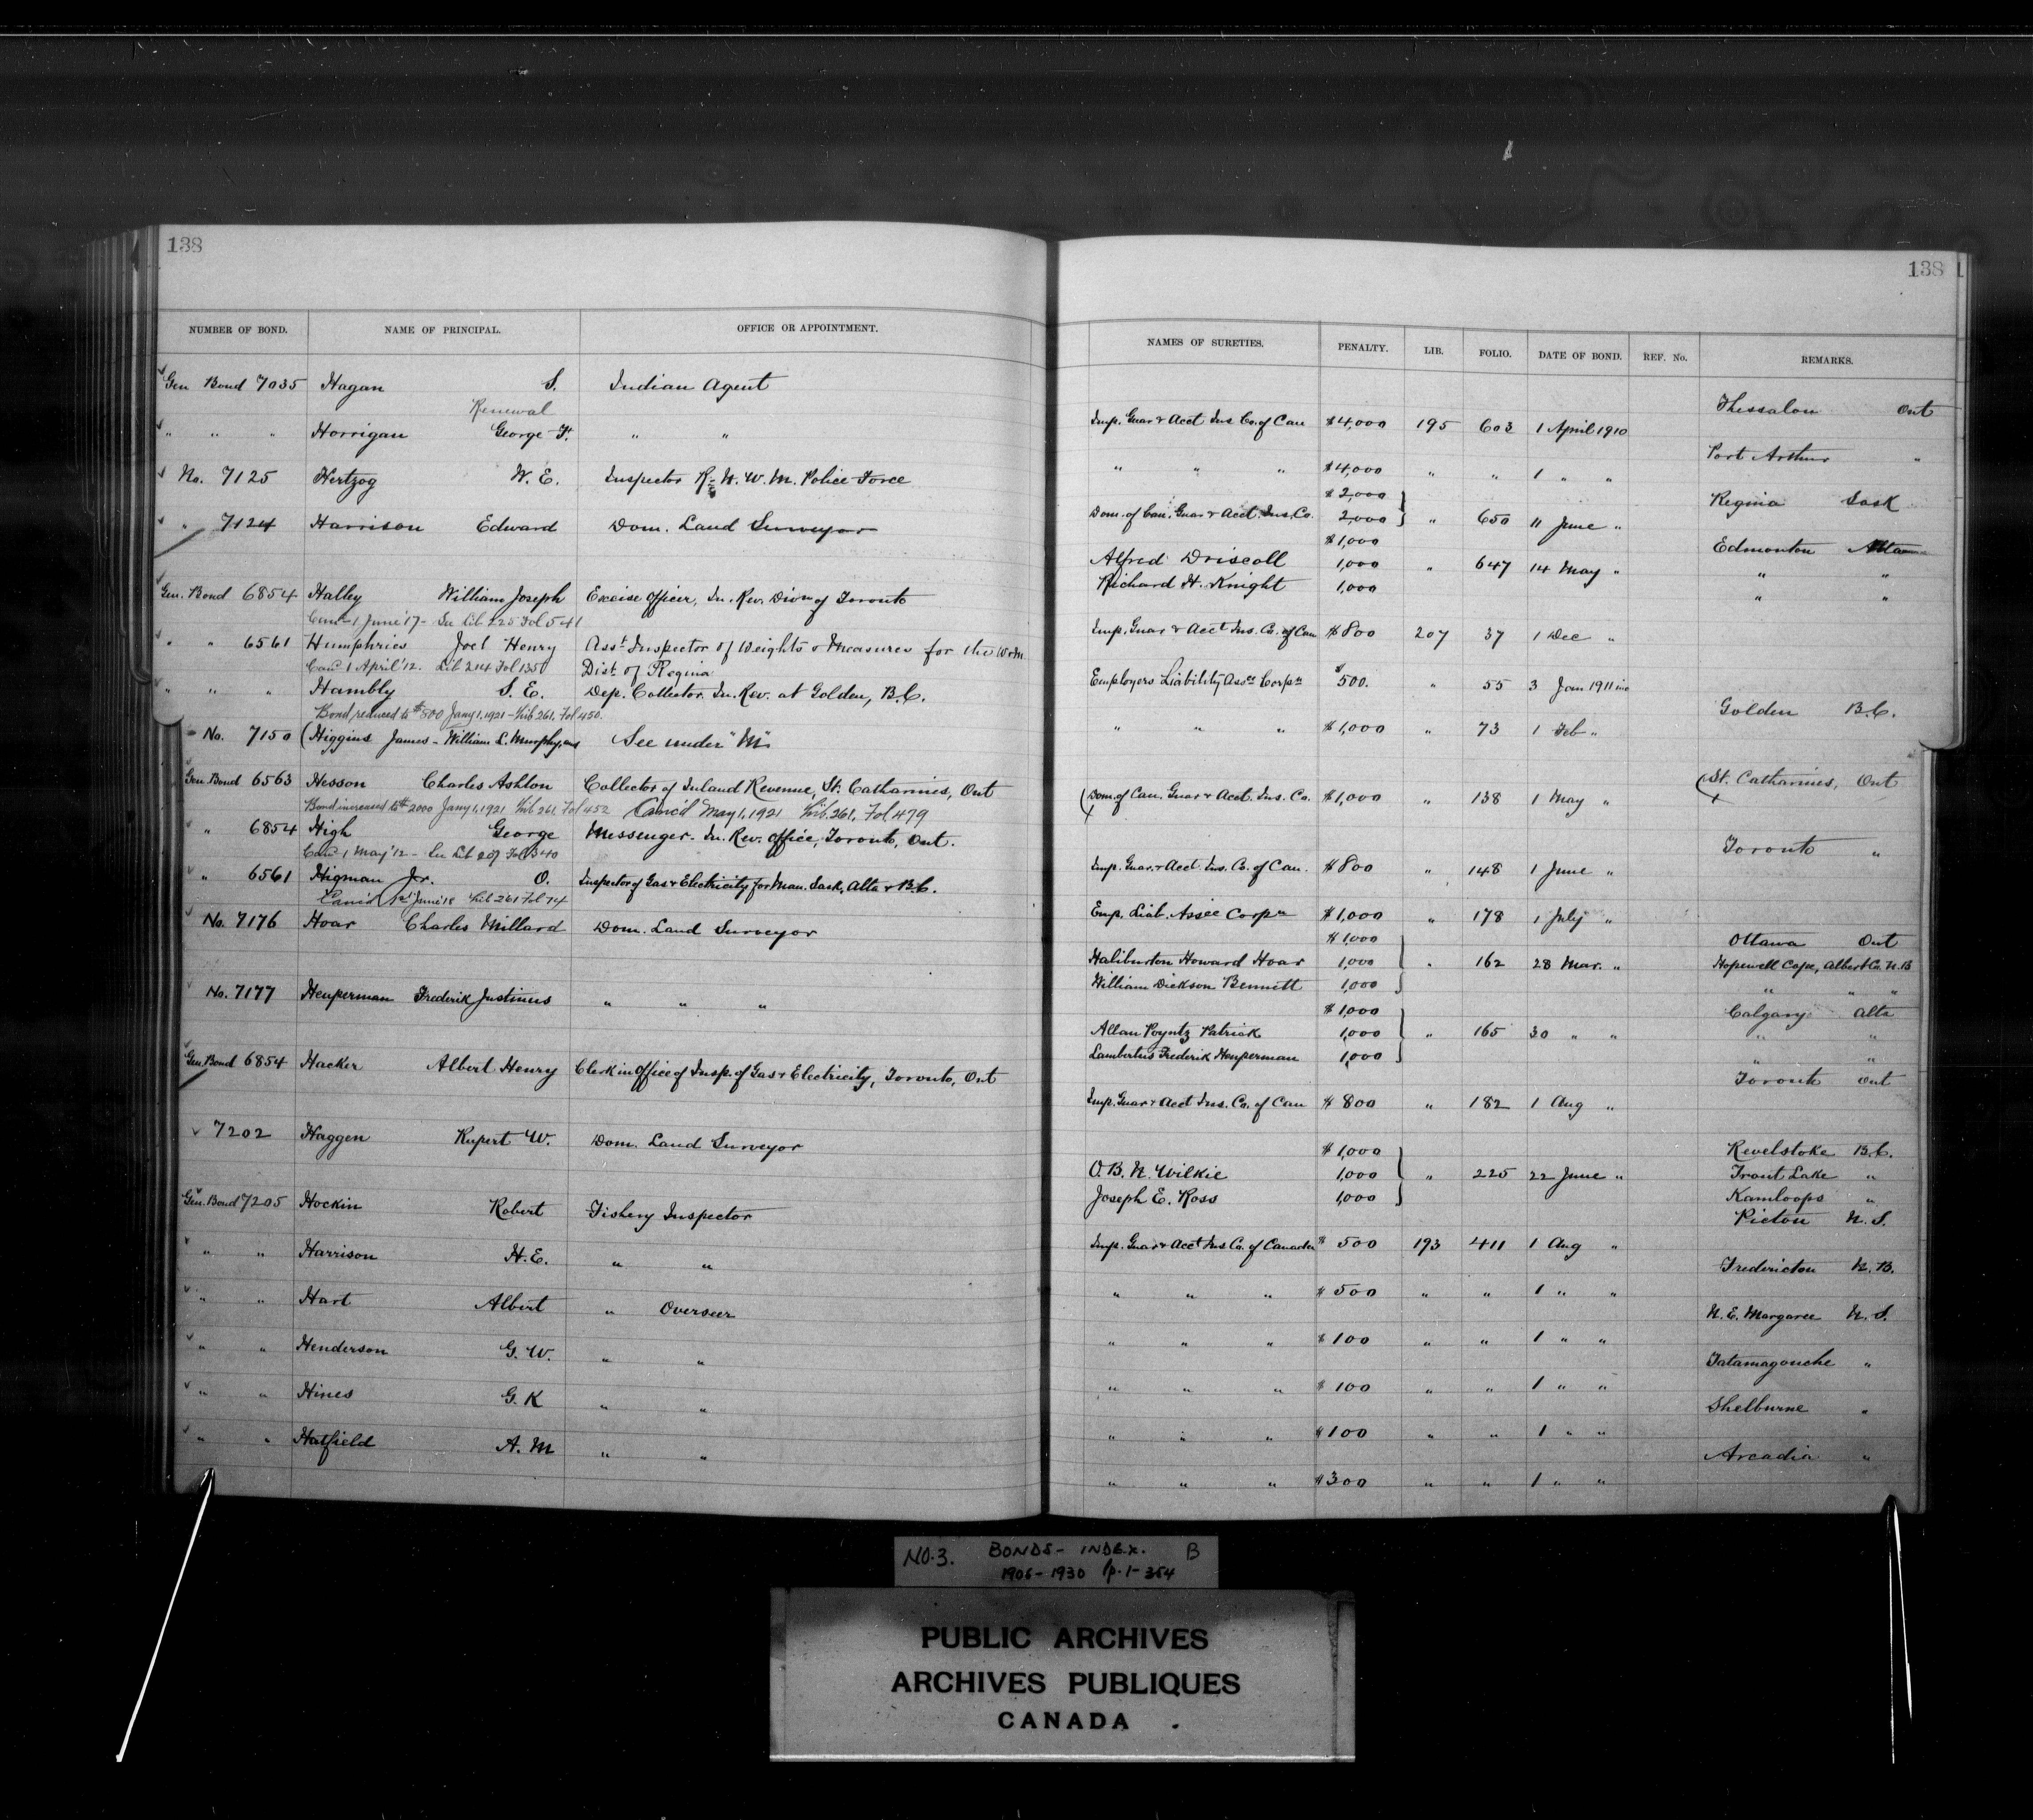 138
NUMBER OF BOND. NAME OF PRINCIPAL. OFFICE OR APPOINTMENT.
Gen Bond 7035 Hagan S. Indian Agent
Renewal
" " " Horrigan George F. " "
No. 7125 Hertzog W. E. Inspector R. N. W. M. Police Force
" 7124 Harrison Edward Dom. Land Surveyor
Gen. Bond 6854 Halley William Joseph Excise Officer, In. Rev. Divn of Toronto
Canc 1 June '17 - See Lib 225 Fol 541
" " 6561 Humphries Joel Henry Asst Inspector of Weights & Measures for the
Canc 1 April '12. Lib 214 Fol 1350 Dist. of Regina
" " " Hambly S. E. Dep. Collector In. Rev. at Golden, B.C.
Bond reduced to $800 Jany 1, 1921 - Lib 261, Fol 450.
No. 7150 (Higgins James - William L. Murphy, and See under "M"
Gen. Bond 6563 Hesson Charles Ashton Collector of Inland Revenue, St. Catharines, Ont
Bond increased to $2000 Jany 1, 1921 Lib 261, Fol 452 Canc'd May 1, 1921 Lib. 261, Fol 479
" 6854 High George Messenger - In. Rev. Office, Toronto, Ont.
Canc 1 May '12 - See Lib 207 Fol 340
" 6561 Higman Jr. O. Inspector of Gas & Electricity for Man. Sask, Alta & B.C.
Canc'd 1st June '18 Lib 261 Fol 74
No. 7176 Hoar Charles Millard Dom. Land Surveyor
No. 7177 Heuperman Frederik Justinus " " "
Gen. Bond 6854 Hacker Albert Henry Clerk in Office of Insp. of Gas & Electricity, Toronto, Ont
7202 Haggen Rupert W. Dom. Land Surveyor
Gen. Bond 7205 Hockin Robert Fishery Inspector
" " Harrison H. E. " "
" " Hart Albert " Overseer
" " Henderson G. W. " "
" " Hines G. K " "
" " Hatfield A. M " "
138
NAMES OF SURETIES. PENALTY. LIB. FOLIO. DATE OF BOND. REF. No. REMARKS.
Thessalon Ont
Imp. Guar & Acct Ins Co. of Can $4,000 195 603 1 April 1910
Port Arthur "
" " " $4,000 " " 1 " "
$2,000 Regina Sask
Dom. of Can. Guar & Acct. Ins. Co. 2,000 } " 650 11 June "
$1,000 Edmonton Alta
Alfred Driscoll 1,000 " 647 14 May " " "
Richard H. Knight 1,000 " "
Imp. Guar & Acct Ins. Co. of Can $800 207 37 1 Dec "
Employers Liability Assce Corpn $500. " 55 3 Jan 1911
Golden B.C.
" " " $1,000 " 73 1 Feb "
(St. Catharines, Ont
(Dom. of Can. Guar & Acct. Ins. Co. $1,000 " 138 1 May "
Toronto "
Imp. Guar. & Acct. Ins. Co. of Can. $800 " 148 1 June "
Emp. Liab. Assce Corpn $1,000 " 178 1 July "
$1,000 Ottawa Ont
Haliburton Howard Hoar 1,000 } " 162 28 Mar. " Hopewell Cape, Albert Co. N.B
William Dickson Bennett 1,000 " " "
$1,000 Calgary Alta
Allan Poyntz Patrick 1,000 } " 165 30 " " " "
Lambertus Frederik Heuperman 1,000 " "
Toronto Ont
Imp. Guar & Acct Ins. Co. of Can $800 " 182 1 Aug "
$1,000 Revelstoke B.C.
O. B. N. Wilkie 1,000 } " 225 22 June " Trout Lake "
Joseph E. Ross 1,000 Kamloops "
Pictou N. S.
Imp. Guar & Acct Ins Co. of Canada $500 193 411 1 Aug "
Fredericton N. B.
" " " $500 " " 1 " "
N. E. Margaree N. S.
" " " $100 " " 1 " "
Tatamagouche "
" " " $100 " " 1 " "
Shelburne "
" " " $100 " " 1 " "
Arcadia "
" " " $300 " " 1 " "
NO. 3. BONDS - INDEX. B
1906 - 1930 p. 1 - 354
PUBLIC ARCHIVES
ARCHIVES PUBLIQUES
CANADA